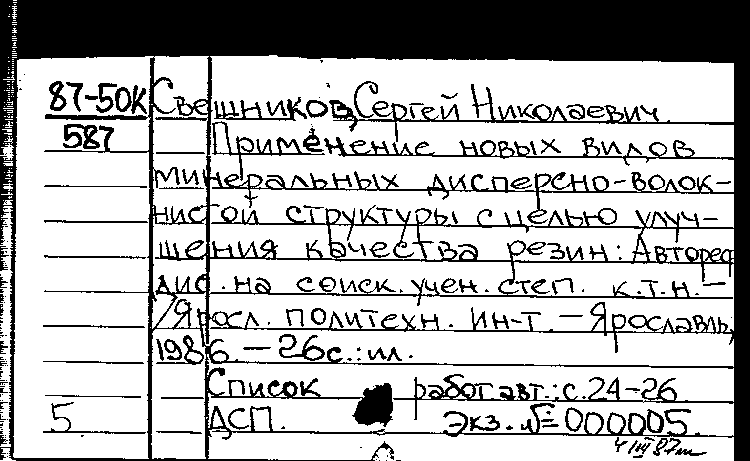 87-50К Свешников, Сергей Николаевич.
587 Применение новых видов
минеральных дисперсно-волок-
нистой структуры с целью улуч-
шения качества резин: Автореф
дис. на соиск. учен. степ. к.т.н. –
/Яросл. политехн. ин-т. – Ярославль,
1986. – 26с.: ил.
Список работ авт.: с. 24-26.
5 ДСП. Экз. № 000005.
4 III 87